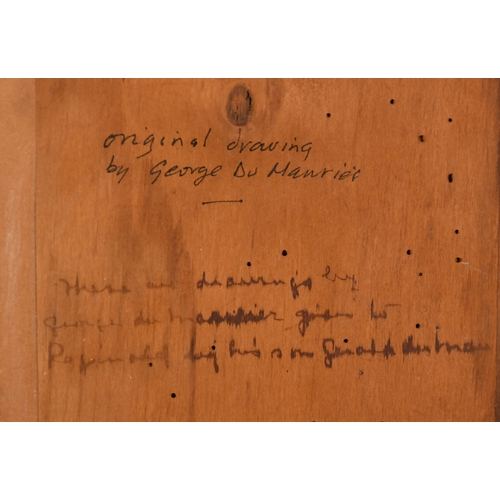 original drawing
by George Du Maurier
These are drawings by
George du Maurier given to
Reginald by his son Gerald du Mau